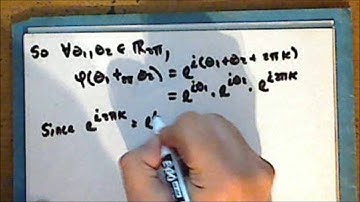 So ∀θ₁,θ₂ ∈ ℝ₂π,
φ(θ₁ +₂π θ₂) = e^{i(θ₁+θ₂+2πk)}
= e^{iθ₁} · e^{iθ₂} · e^{i2πk}
Since e^{i2πk} = e
EXPO